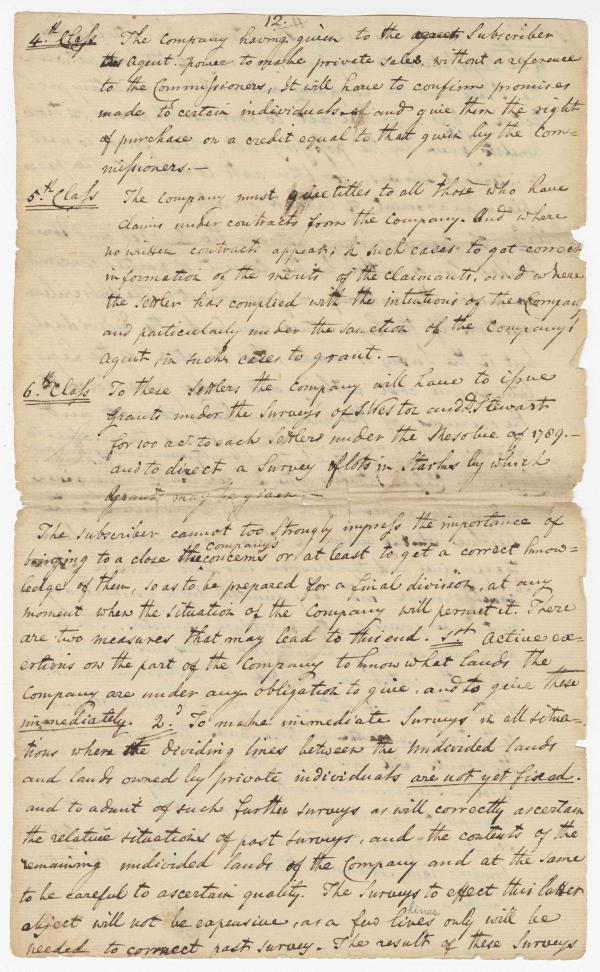 12.
4.th Class The company having given to the agent Subscriber
this Agent. power to make private sales, without a reference
to the Commissioners, It will have to confirm promises
made to certain individuals and give them the right
of purchase on a credit equal to that given by the Com=
missioners.—
5.th Class The company must give titles to all those who have
claims under contracts from the Company. And where
no written contract appears, in such cases to get correct
information of the merits of the claimants, and where
the Settler has complied with the intentions of the Company
and particularly under the sanction of the Company's
Agent, in such cases to grant.—
6.th Class To these Settlers the Company will have to issue
Grants under the Surveys of S. Weston and D. Stewart
for 100 acs. to each Settler under the Resolve of 1789.—
and to direct a Survey of lots in Starks by which
Grants may be given.—
The subscriber cannot too strongly impress the importance of
bringing to a close the Companys concerns or at least to get a correct know=
ledge of them, so as to be prepared for a final division, at any
moment when the situation of the Company will permit it. There
are two measures that may lead to this end. 1st Active ex=
ertions on the part of the Company to know what lands the
Company are under any obligation to give, and to give these
immediately. 2.d To make immediate Surveys in all situa=
tions where the dividing lines between the Undivided lands
and lands owned by private individuals are not yet fixed.
and to admit of such further surveys as will correctly ascertain
the relative situations of past surveys, and the contents of the
remaining undivided lands of the Company and at the same
to be careful to ascertain quality. The Surveys to effect this latter
object will not be expensive, as a few lines lines only will be
needed to correct past survey. The result of these Surveys